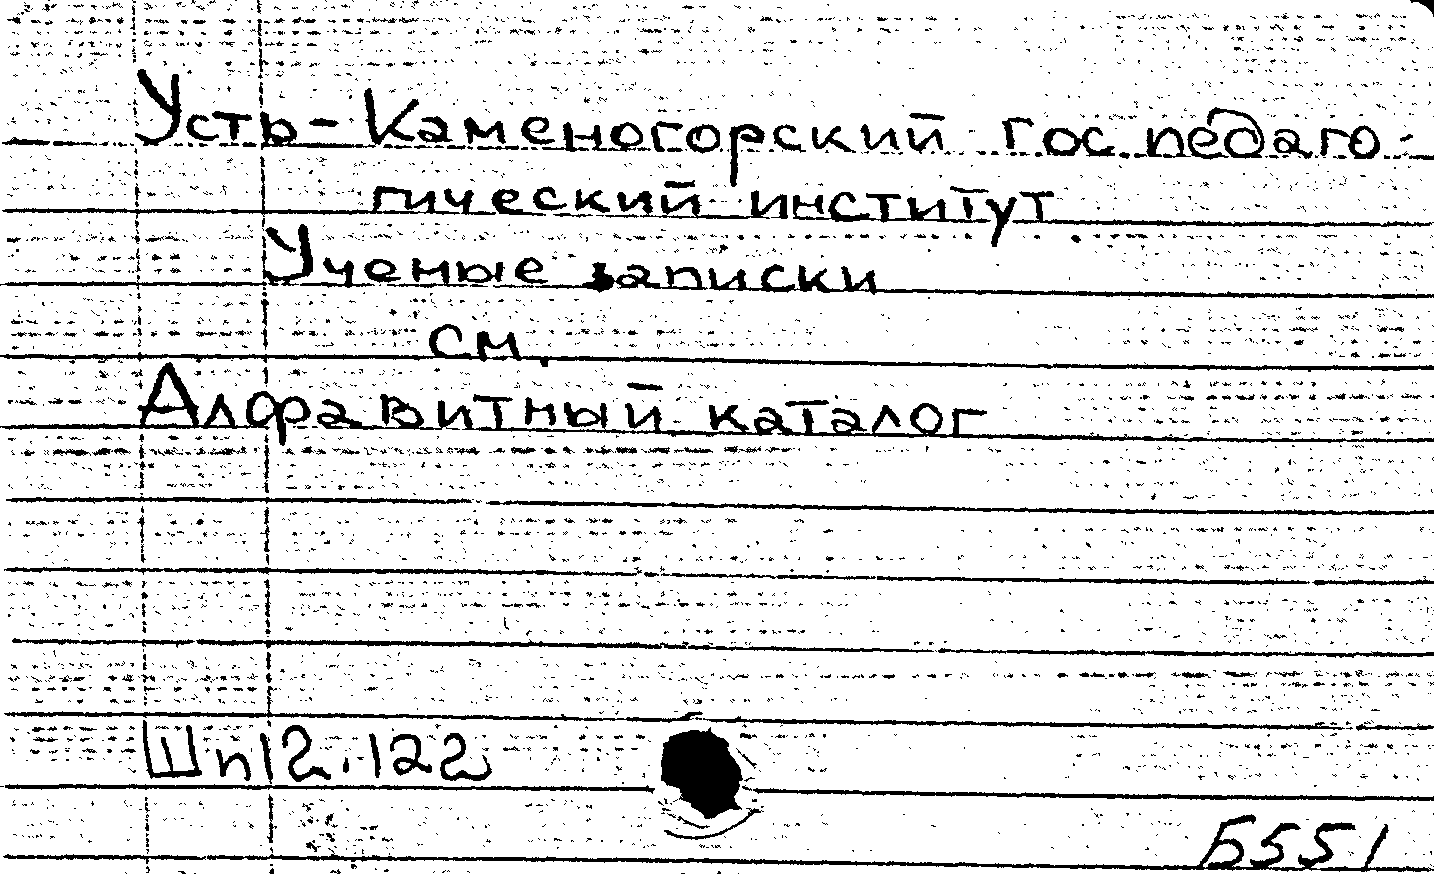 Усть-Каменогорский гос педаго-
гический институт.
Ученые записки
см.
Алфавитный каталог
Шп12.122
Б551